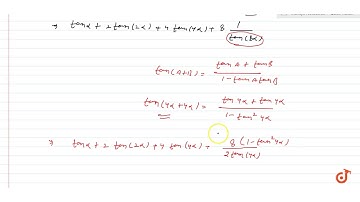 → tanα + 2 tan(2α) + 4 tan(4α) + 8 1/tan(8α)
tan(A+B) = tanA + tanB / 1 - tanA tanB
tan(4α+4α) = tan4α + tan4α / 1 - tan²4α
⇒ tanα + 2 tan(2α) + 4 tan(4α) + 8(1 - tan²4α) / 2 tan(4α)